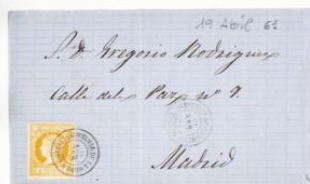 19 Abril 61
S. D. Gregorio Rodriguez
Calle del Paz nº 7.
Madrid